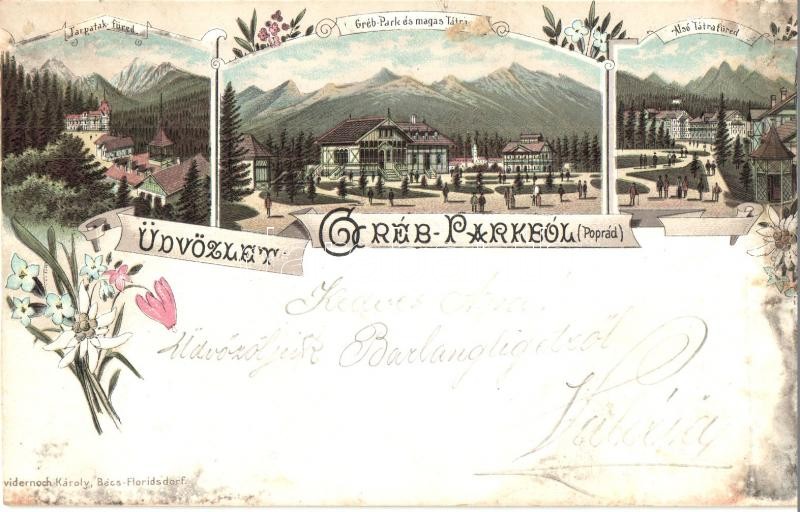 Tarpatak füred
Gréb-Park és magas Tátra
Alsó Tátrafüred
ÜDVÖZLET
GRÉB-PARKBÓL (Poprád)
Kedves
Üdvözöljük Barlangligetről
videmoch Károly, Bécs-Floridsdorf.